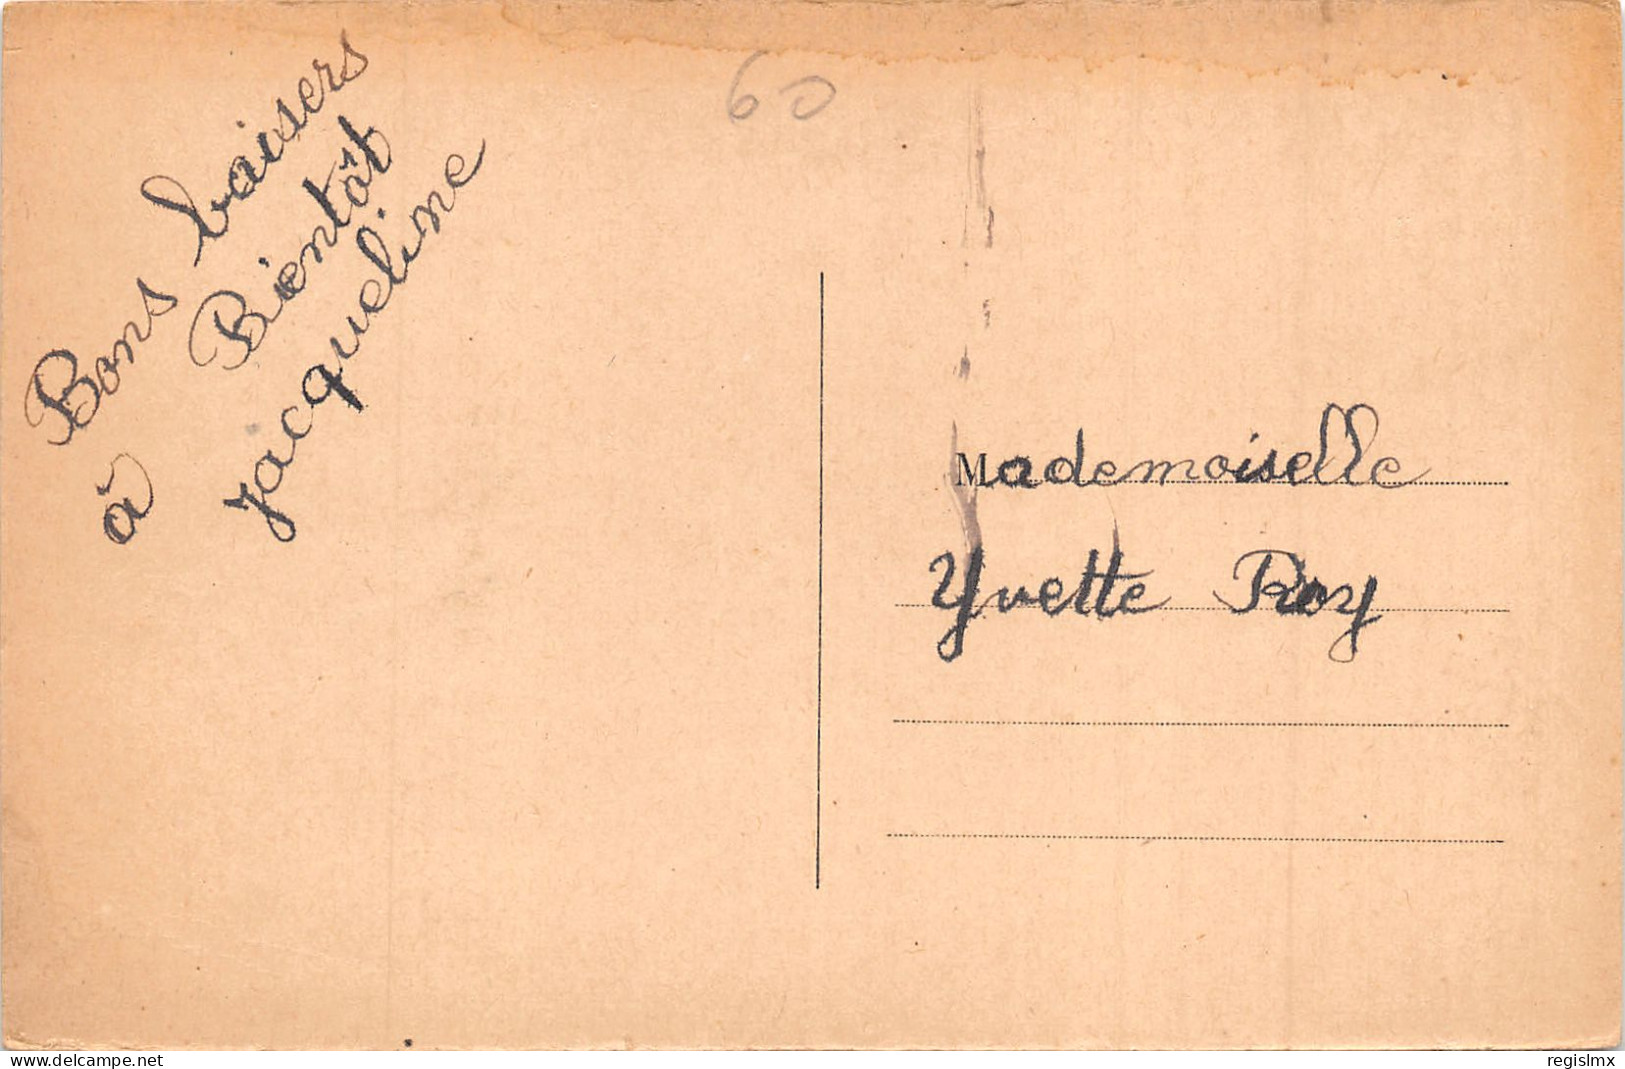 60
Bons baisers
à Bientôt
Jacqueline
Mademoiselle
Yvette Roy
www.delcampe.net
regislmx